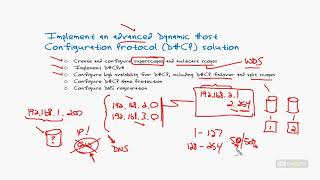 Implement an advanced Dynamic Host
Configuration Protocol (DHCP) solution
Create and configure superscopes and multicast scopes
WDS
Implement DHCPv6
Configure high availability for DHCP, including DHCP failover and split scopes
Configure DHCP name protection
Configure DNS registration
192.168.1.200
192.168.2.0
192.168.3.0
192.168.2.1
2.254
IP!
?
DNS
1-127
128-254
50/50%
1
2